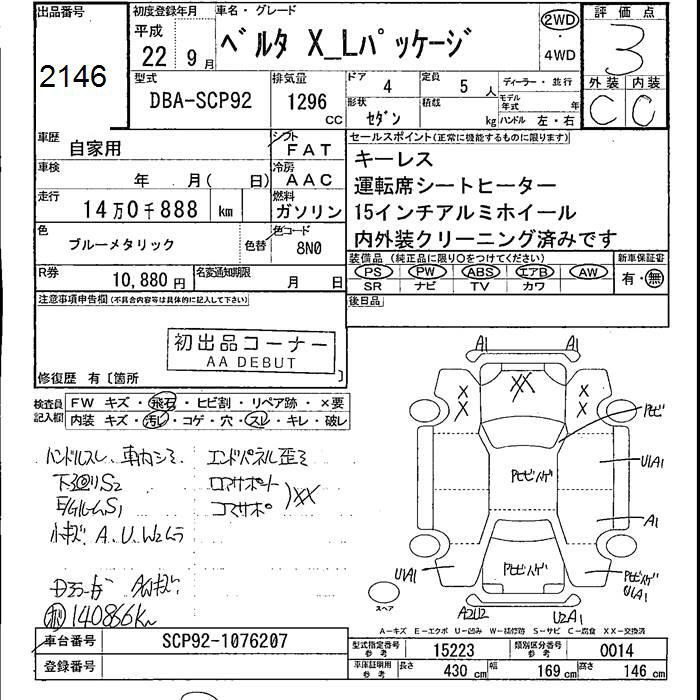 出品番号
2146
初度登録年月
平成
22 9月
車名・グレード
ベルタ X_Lパッケージ
2WD
・
4WD
評価点
3
外装 内装
C C
型式
DBA-SCP92
排気量
1296
cc
ドア
4
定員
5 人
ディーラー・並行
形状
セダン
積載
kg
モデル年式 年
ハンドル 左・右
車歴
自家用
シフト
FAT
車検
年 月( 日)
冷房
AAC
走行
14万0千888 km
燃料
ガソリン
色
ブルーメタリック
色替
色コード
8N0
R券
10,880円
名変通知期限
月 日
セールスポイント(正常に機能するものに限ります)
キーレス
運転席シートヒーター
15インチアルミホイール
内外装クリーニング済みです
装備品 (純正品に限り○をつけてください)
PS PW ABS エアB AW
SR ナビ TV カワ
新車保証書
有・無
後日品
注意事項申告欄(不具合内容等は具体的に記入して下さい)
初出品コーナー
AA DEBUT
修復歴 有〔箇所 〕
検査員記入欄
FW キズ・飛石・ヒビ割・リペア跡・×要
内装 キズ・汚レ・コゲ・穴・スレ・キレ・破レ
ハンドルスレ
エンドパネル歪ミ
下廻りS2
コアサポート
XX
小キズ A、U、W2ムラ
140866Km
A1 A1
XX
X X
X X
U1A1
A1
U1A1
A2U2
U2A1
U1A1
スペア
A-キズ E-エクボ U-凹み W-補修跡 S-サビ C-腐食 XX-交換済
車台番号
SCP92-1076207
登録番号
型式指定番号
参考
15223
類別区分番号
参考
0014
車庫証明用
参考
長さ
430 cm
幅
169 cm
高さ
146 cm